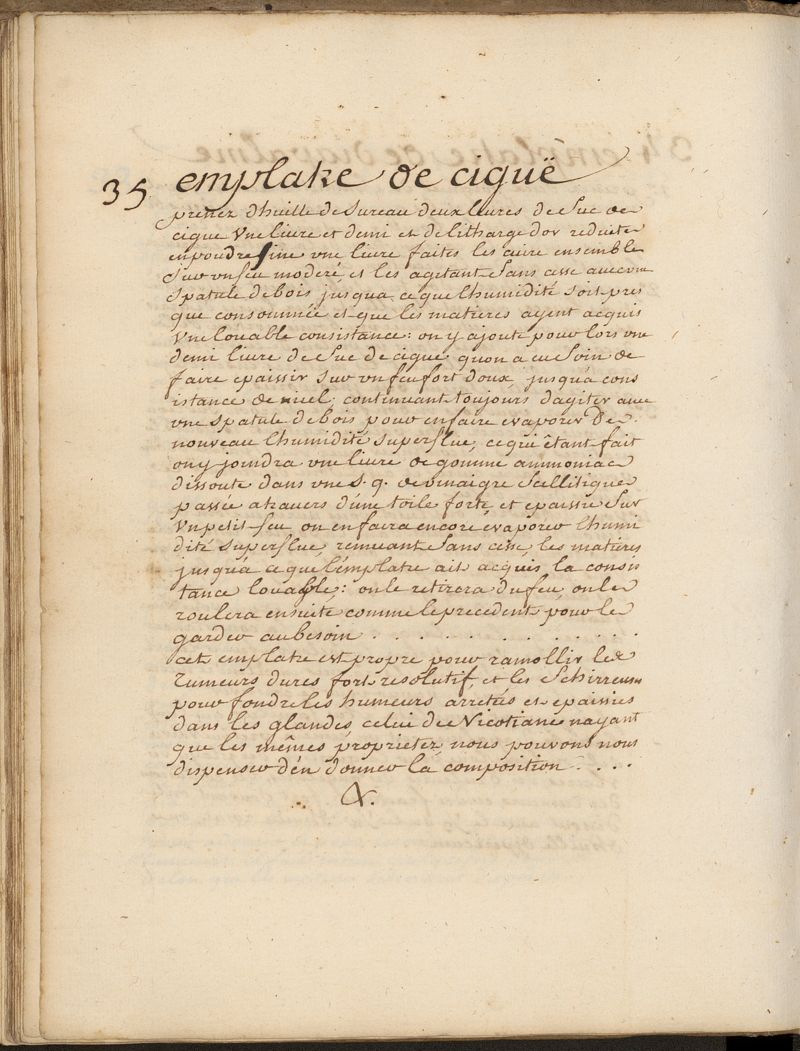 35 emplatre de ciguë
prenez d'huille de Sureau deux livres de Suc de
cigue Une livre et demi et de litharge d'or reduite
en poudre fine une livre faites les cuire ensemble
Sur un feu moderé, et les agitant Sans cesse avec une
Spatule de bois jusqua ce que lhumidité soit pres
que consommée et que les matieres ayent acquis
Une louable consistance: on y ajoute pour lors une
demi livre de Suc de cigue, quon a eu Soin de
faire epaissir Sur un feu fort doux, jusqu'a cons
istance de miel, continuant toujours d'agiter avec
une spatule de bois pour en faire evaporer De
nouveau lhumidité superflue, ce qui êtant fait
on y joindra une livre de gomme ammoniac
dissoute dans une s. q. de vinaigre Scillitique
passée a travers d'une toile forte, et epaissie Sur
Un petit feu on en faira encore evaporer lhumi
dité superflue, remuant Sans cesse, les matieres
jusqu'a ce que l'emplatre ait acquis la consis
tance louable: on le retirera du feu, on le
roulera ensuite comme le precedent pour le
garder au besoin . . . . . . . . . . . .
cet emplatre est propre pour ramollir les
Tumeurs dures fort resolutif, et les Schirreuses
pour fondre les humeurs arretées et epaissies
dans les glandes, celui de Nicotiane nayant
que les mêmes proprietez, nous pouvons nous
dispenser d'en donner la composition . . . .
&.